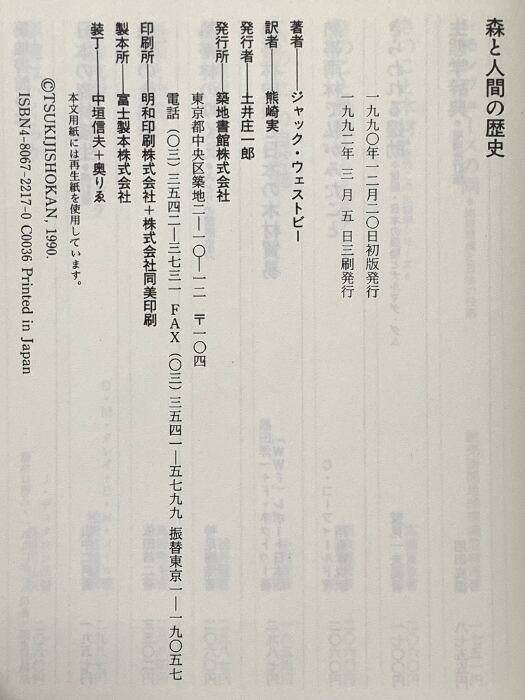 森と人間の歴史
一九九〇年一二月二〇日初版発行
一九九二年 三月 五日三刷発行
著者――ジャック・ウェストビー
訳者――熊崎実
発行者――土井庄一郎
発行所――築地書館株式会社
東京都中央区築地二―一〇―一二 〒一〇四
電話(〇三)三五四二―三七三一 FAX(〇三)三五四一―五七九九 振替東京一―一九〇五七
印刷所――明和印刷株式会社+株式会社同美印刷
製本所――富士製本株式会社
装丁――中垣信夫+奥りゑ
本文用紙には再生紙を使用しています。
©TSUKIJISHOKAN, 1990.
ISBN4-8067-2217-0 C0036 Printed in Japan